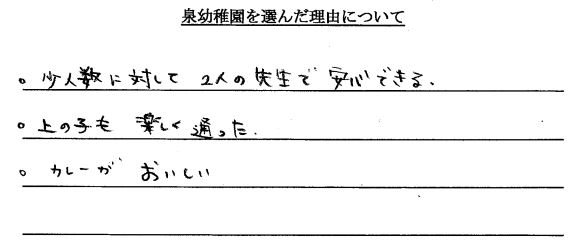 泉幼稚園を選んだ理由について
。少人数に対して 2人の先生で 安心できる.
。上の子も 楽しく 通った.
。カレーが おいしい